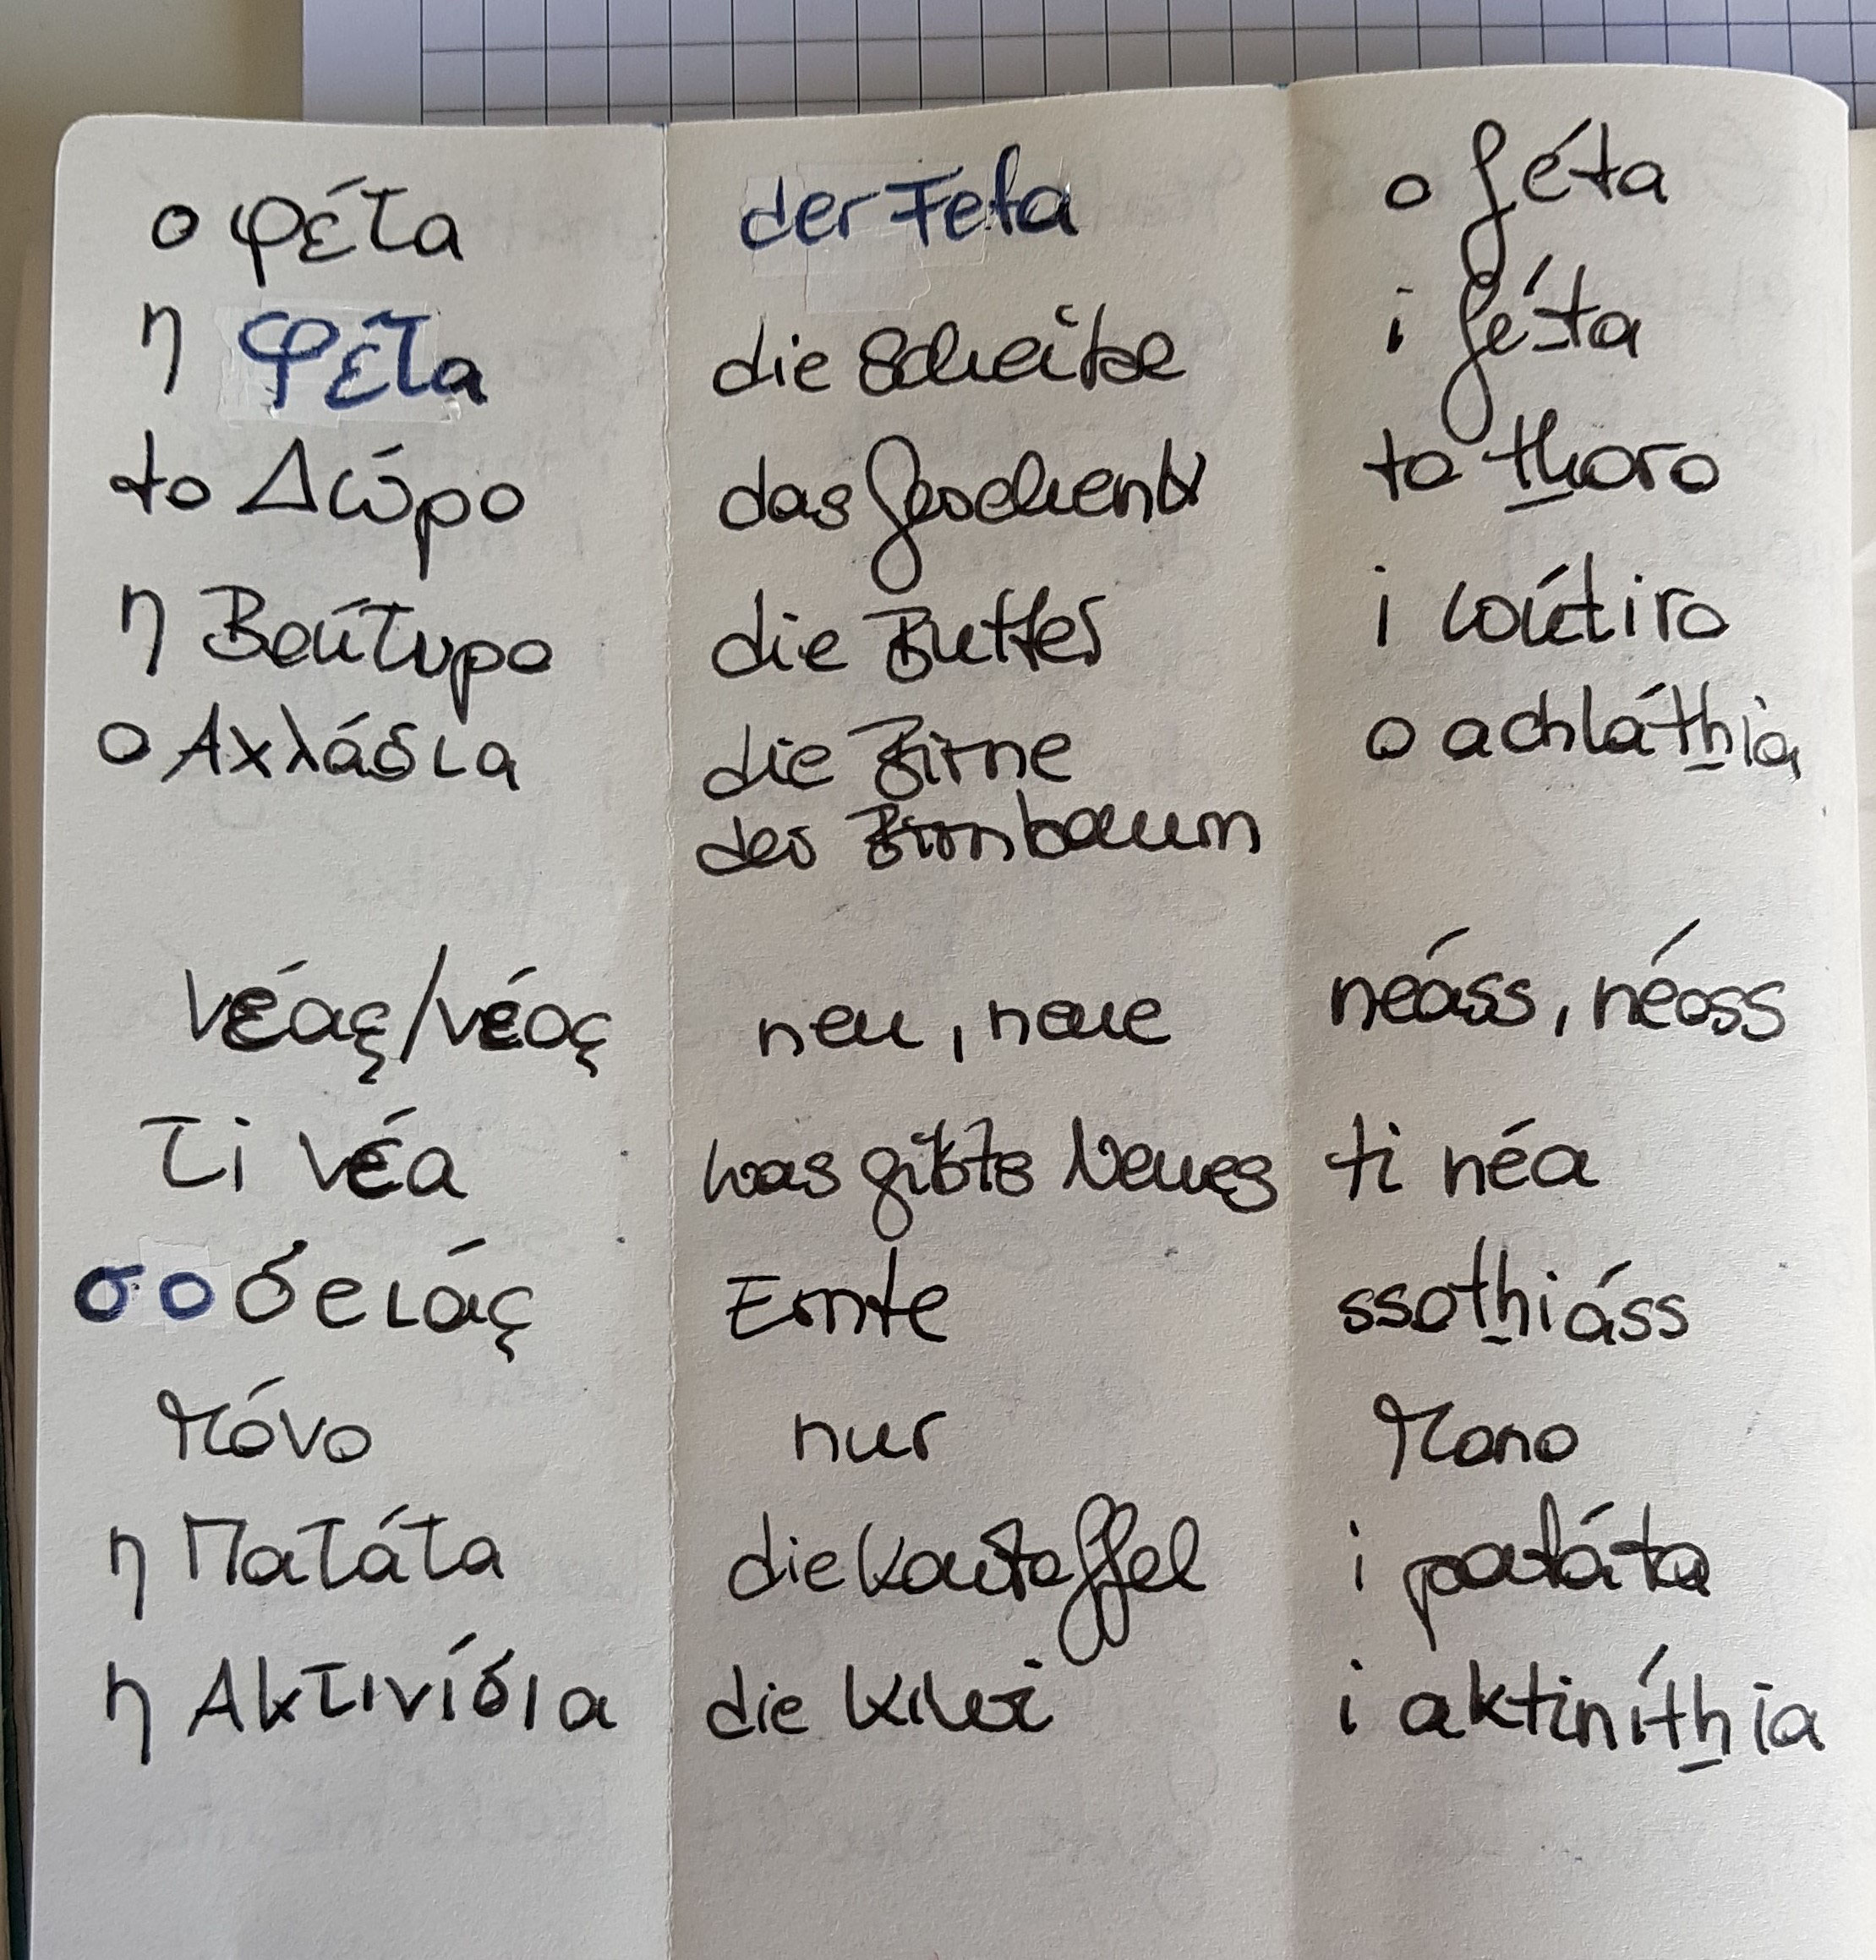 ο φέτα der Feta o féta
η Φέτα die Scheibe i féta
το Δώρο das Geschenk to thoro
η Βούτυρο die Butter i wútiro
ο Αχλάδια die Birne o achláthia
der Birnbaum
νέας/νέος neu, neue néáss, néoss
τi νέα was gibts Neues ti néa
σοδειάς Ernte ssothiáss
Μόνο nur Mono
η Πατάτα die Kartoffel i patáta
η Ακτινίδια die Kiwi i aktiníthia